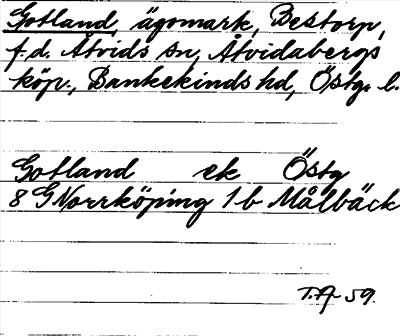 Gotland, ägomark, Bestorp,
f.d. Åtvids sn, Åtvidabergs
köp., Bankekinds hd, Östg. l.
Gotland ek Östg
8 G Norrköping 1 b Målbäck
T.A. 59.